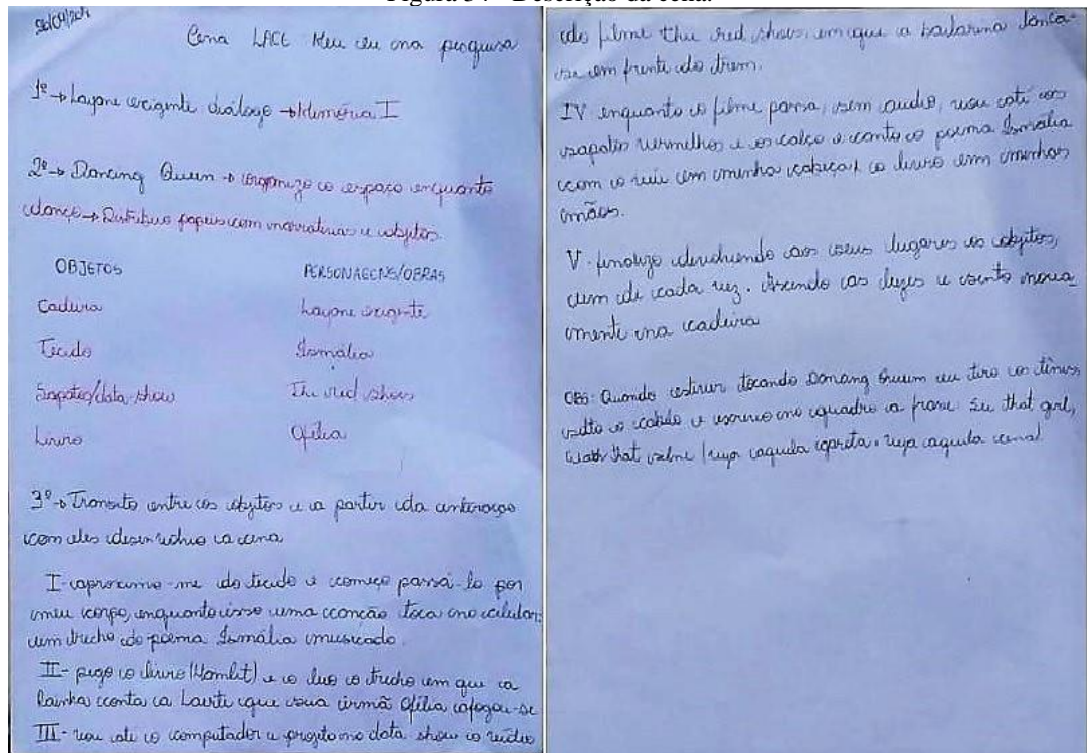 Figura 34 - Descrição da cena.
Cena LACE Meu eu na pesquisa
1º → Layane exigente diálogo → Memória I
2º → Dancing Queen → organizo o espaço enquanto
danço → Distribuo papeis com narrativas e objetos.
OBJETOS PERSONAGENS/OBRAS
Cadeira Layane exigente
Tecido Ismália
Sapatos/data show The red shoes
Livro Ofélia
3º → Transito entre os objetos e a partir da interação
com eles desenvolvo a cena
I - aproximo-me do tecido e começo passá-lo por
meu corpo, enquanto isso uma canção toca no celular,
um trecho do poema Ismália musicado.
II - pego o livro (Hamlet) e o leio o trecho em que a
Rainha conta a Laerte que sua irmã Ofélia afogou-se
III - vou até o computador e projeto no data show o vídeo
do filme The red shoes, em que a bailarina lança-
se em frente do trem.
IV enquanto o filme passa, sem audio, vou até os
sapatos vermelhos e os calço e canto o poema Ismália
com o véu em minha cabeça e o livro em minhas
mãos.
V - finalizo devolvendo aos seus lugares os objetos,
um de cada vez. Acendo as luzes e sento nova
mente na cadeira
OBS: Quando estiver tocando Dancing Queen eu tiro os tênis,
solto o cabelo e escrevo no quadro a frase: See that girl,
watch that scene / veja aquela garota, veja aquela cena!